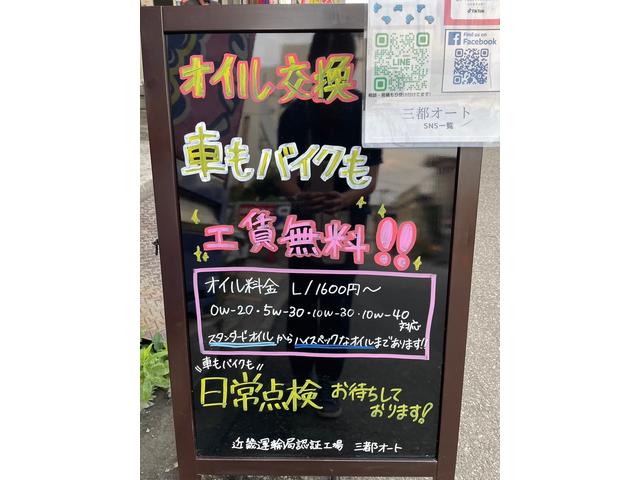 オイル交換
車もバイクも
工賃無料!!
オイル料金 L/1600円~
0w-20・5w-30・10w-30・10w-40
対応
スタンダードオイルからハイスペックなオイルまであります!!
"車もバイクも"
日常点検 お待ちして
おります!
近畿運輸局認証工場 三都オート
LINE
Find us on
Facebook
三都オート
SNS一覧